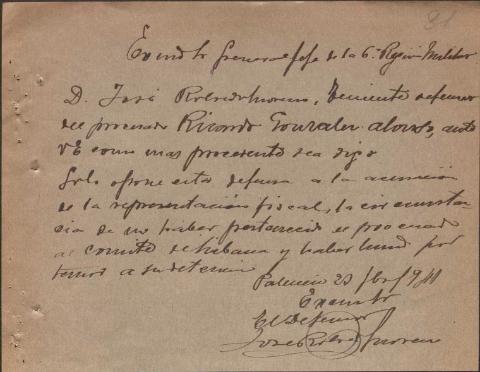 81
Exmo Sr General Jefe de la 6ª Región Militar
D. José Robredo Moreno, Teniente defensor
del procesado Ricardo Gonzalez Alonso, ante
V E como mas procedente sea digo
Solo opone esta defensa a la acusación
de la representación fiscal, la circunstan
cia de no haber pertenecido el procesado
al comité de and y haber por
a su
Palencia 23
Exmo Sr
El Defensor
José Robredo Moreno